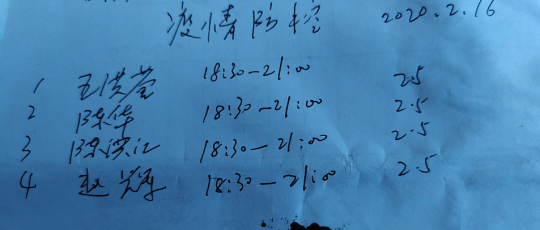 疫情防控 2020.2.16
1 王洪莹 18:30-21:00 2.5
2 陈华 18:30-21:00 2.5
3 陈洪江 18:30-21:00 2.5
4 赵辉 18:30-21:00 2.5